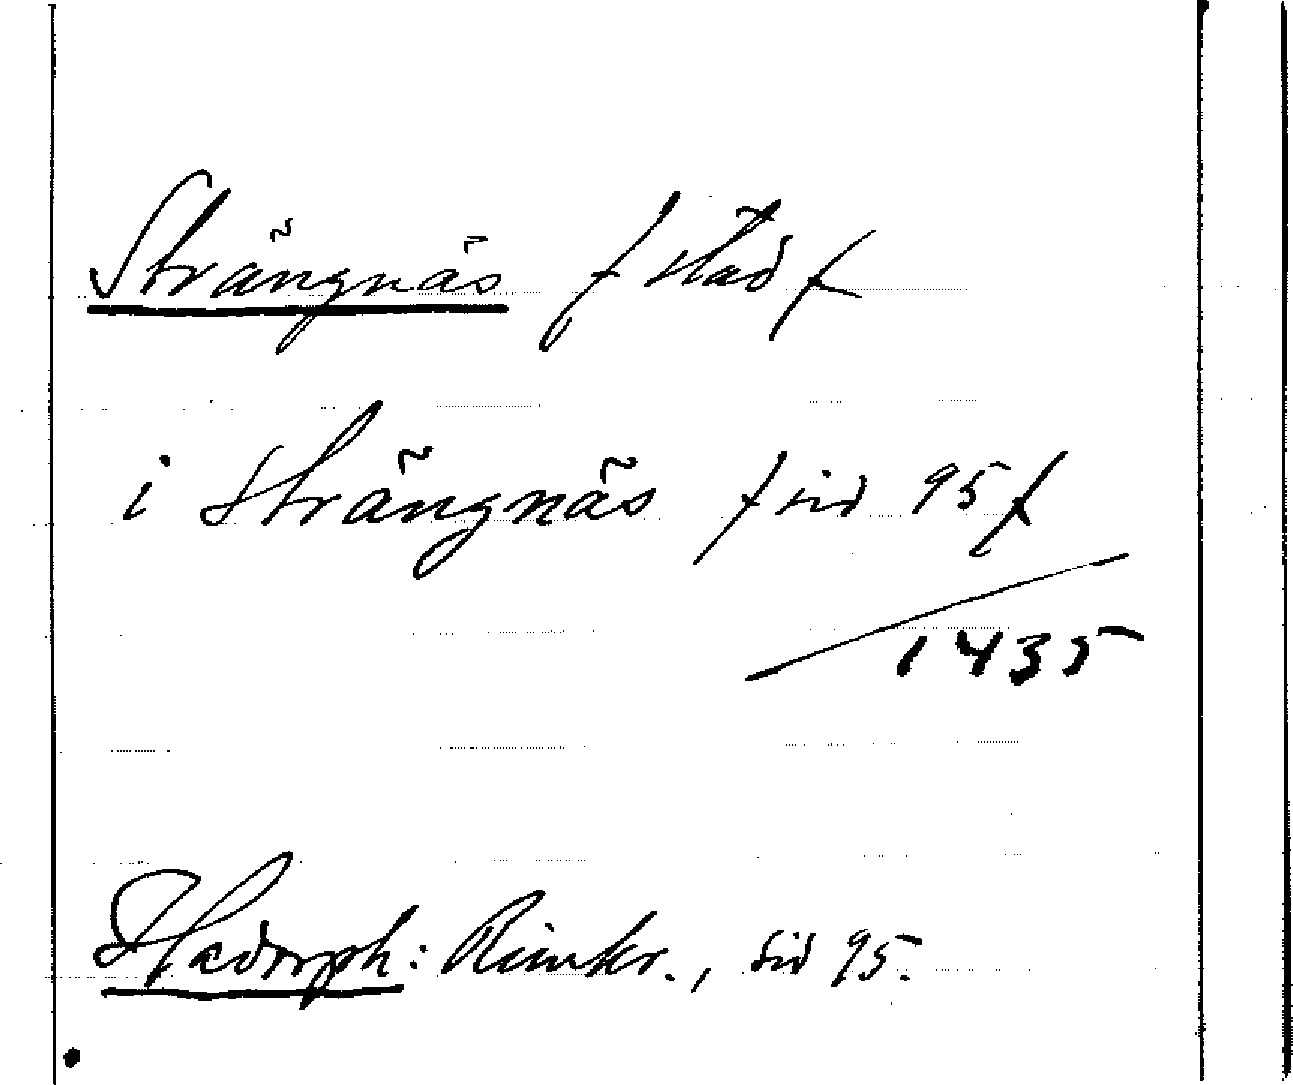 Strängnäs / stad /
i Strängnäs / sid 95 /
1435
Hadorph: Rimkr., sid 95.